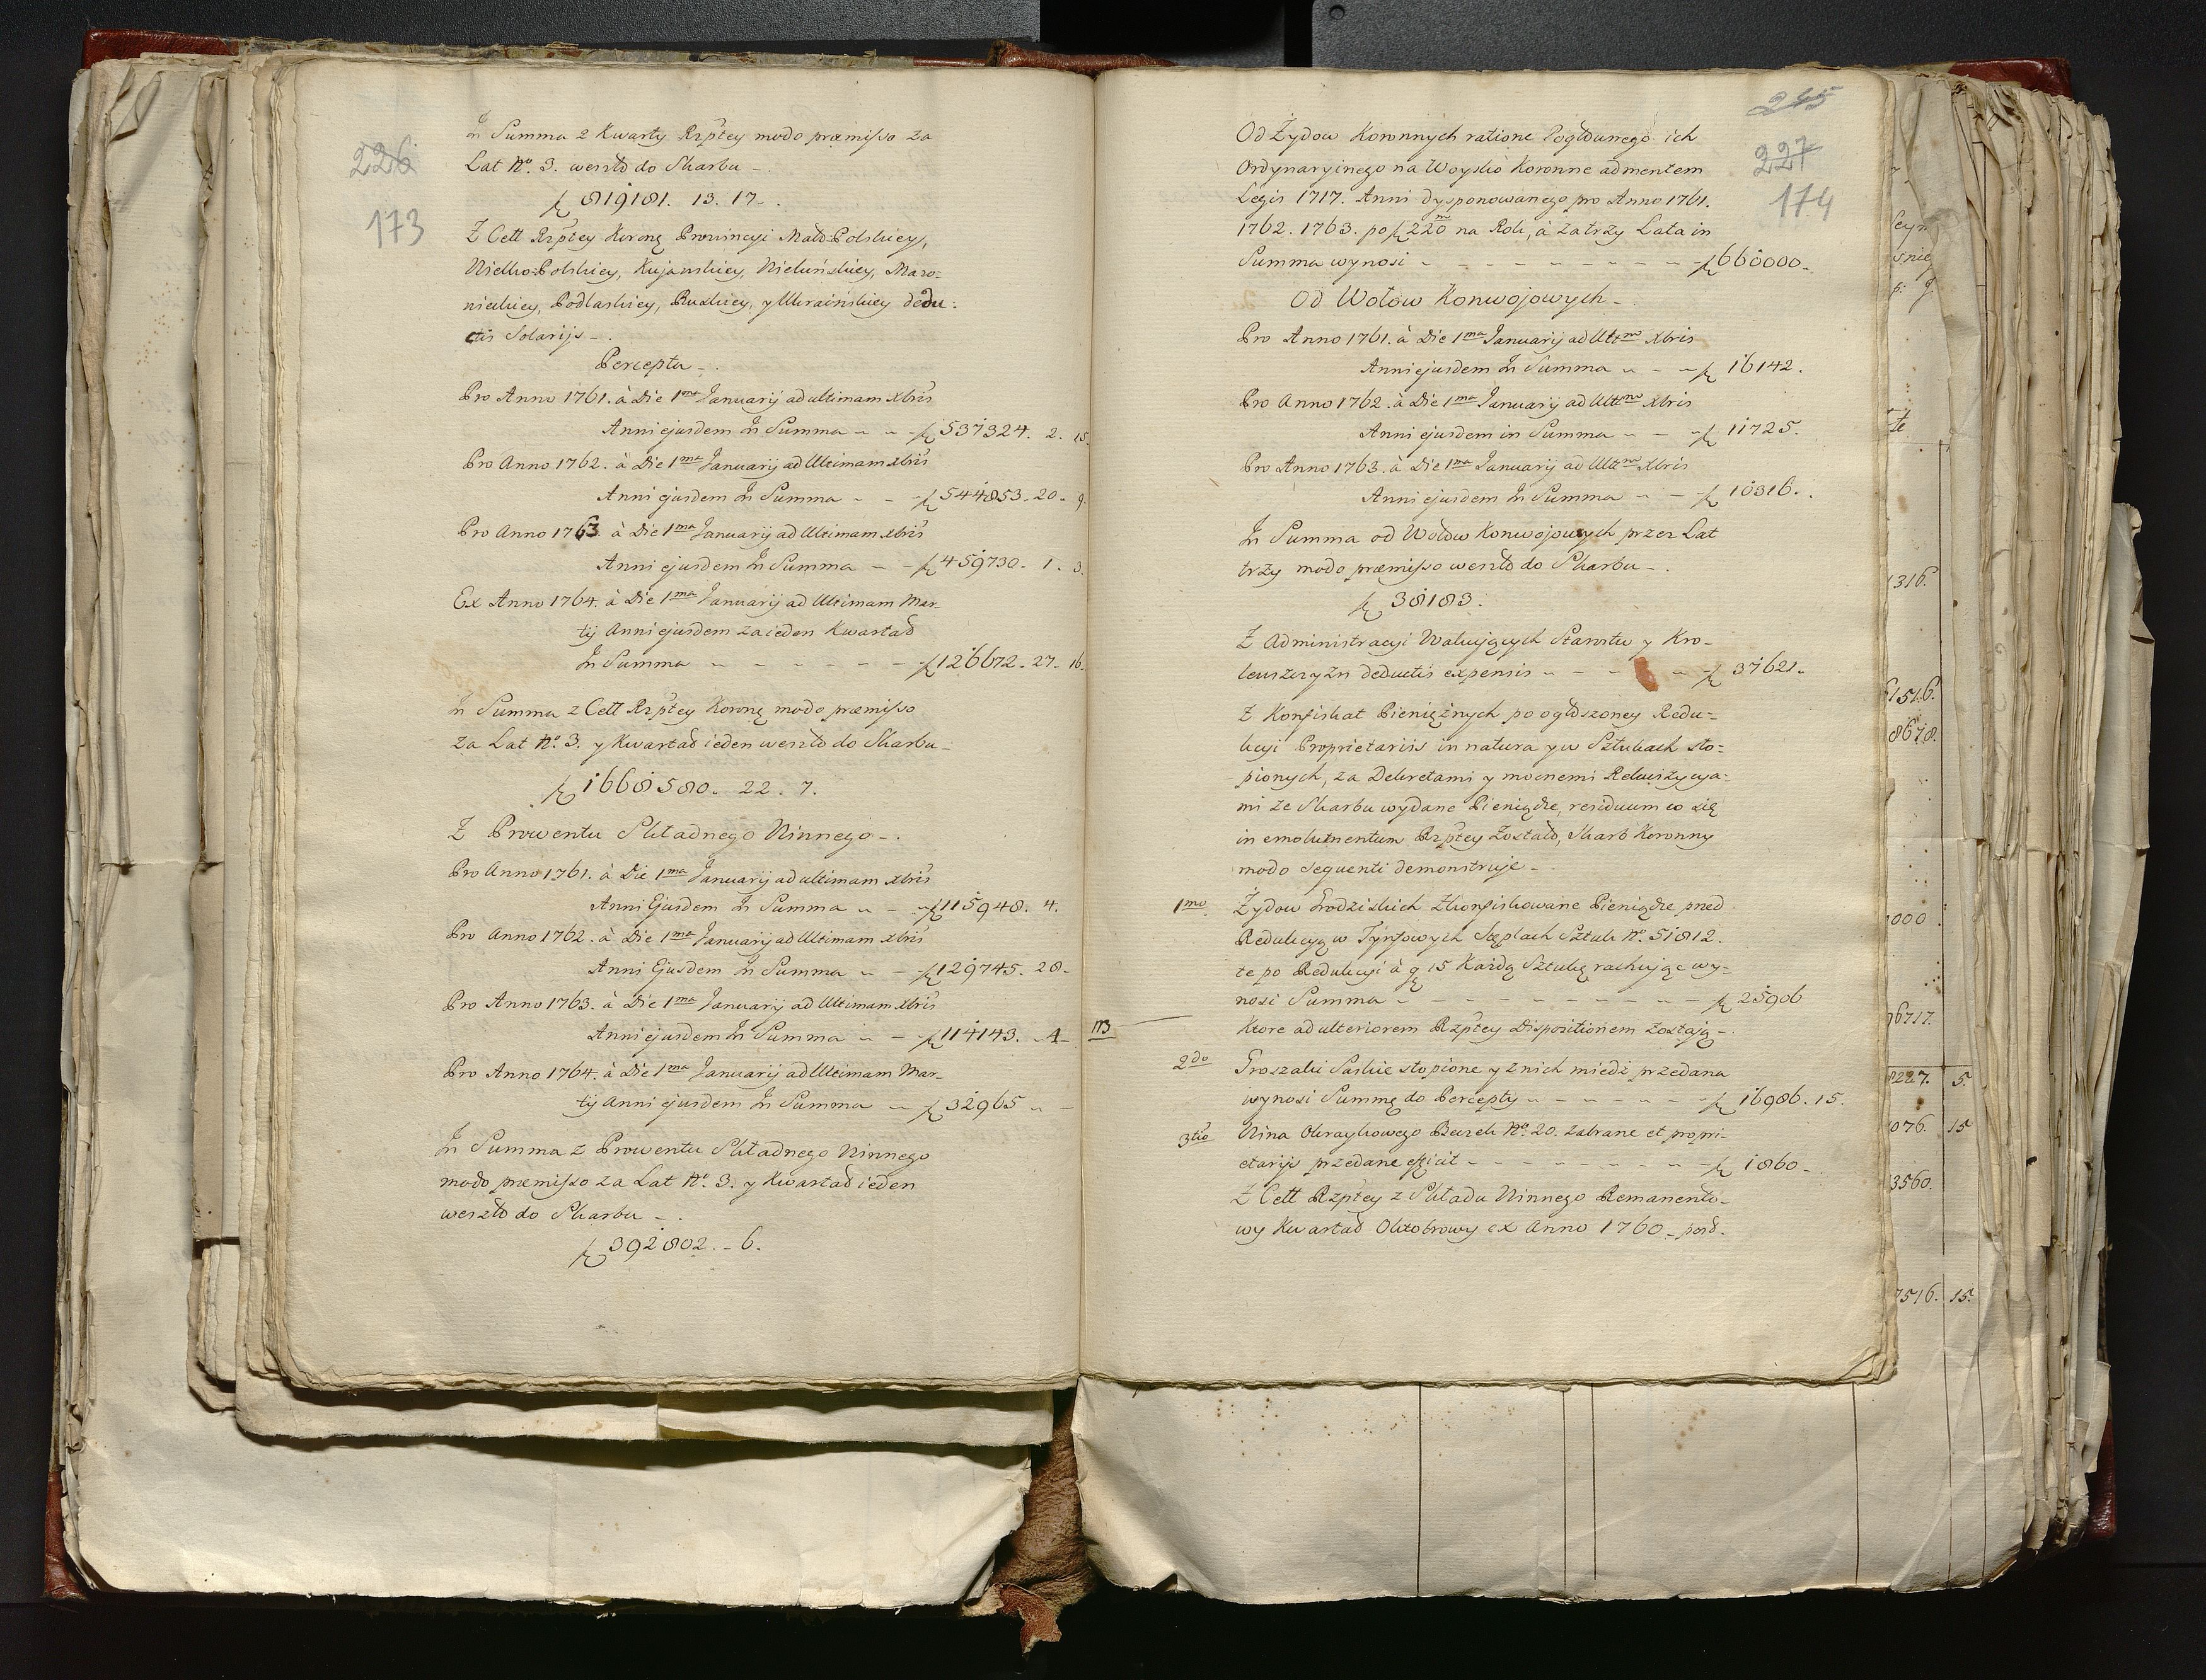 226
173
In Summa z Kwarty Rzptey modo præmisso za
Lat No. 3. weszło do Skarbu -.
f 819181. 13. 17.
Z Cell Rzptey Koroną Prowincyi Mało-Polskiey,
Wielko-Polskiey, Kujawskiey, Wieluńskiey, Mazo-
wieckiey, Podlaskiey, Ruskiey, y Ukraińskiey dedu-
ctis Solarijs -.
Percepta -.
Pro Anno 1761. à Die 1ma Januarij ad ultimam Xbris
Anni ejusdem In Summa - - f 537324. 2. 15.
Pro Anno 1762. à Die 1ma Januarij ad Ultimam Xbris
Anni ejusdem In Summa - - f 544853. 20. 9.
Pro Anno 1763 à Die 1ma Januarij ad Ultimam Xbris
Anni ejusdem In Summa - - f 459730. 1. 3.
Ex Anno 1764. à Die 1ma Januarij ad Ultimam Mar-
tij Anni ejusdem za ieden Kwartał
In Summa - - - - - - f 126672. 27. 16.
In Summa z Cell Rzptey Koroną modo præmisso
za Lat No. 3. y Kwartał ieden weszło do Skarbu -
f 1668580. 22. 7.
Z Prowentu Składnego Winnego -.
Pro Anno 1761. à Die 1ma Januarij ad ultimam Xbris
Anni Ejusdem In Summa - - f 115948. 4.
Pro Anno 1762. à Die 1ma Januarij ad Ultimam Xbris
Anni Ejusdem In Summa - - f 129745. 28.
Pro Anno 1763. à Die 1ma Januarij ad Ultimam Xbris
Anni ejusdem In Summa - - f 114143. - 4 -
Pro Anno 1764. à Die 1ma Januarij ad Ultimam Mar-
tij Anni ejusdem In Summa - f 32965 - -
In Summa z Prowentu Składnego Winnego
modo præmisso za Lat No. 3. y Kwartał ieden
weszło do Skarbu -.
f 392802. - 6.
245
227
174
Od Żydow Koronnych ratione Pogłownego ich
Ordynaryinego na Woysko Koronne ad mentem
Legis 1717. Anni dysponowanego pro Anno 1761.
1762. 1763. po f 220 m na Rok, à za trzy Lata in
Summa wynosi - - - - - - - f 660000.
Od Wołow Konwojowych -
Pro Anno 1761. à Die 1ma Januarij ad Ultma Xbris
Anni ejusdem In Summa - - - f 16142.
Pro Anno 1762. à Die 1ma Januarij ad Ultma Xbris
Anni ejusdem in Summa - - - f 11725.
Pro Anno 1763. à Die 1ma Januarij ad Ultma Xbris
Anni ejusdem In Summa - - f 10316.
In Summa od Wołow Konwojowych przez Lat
trzy modo præmisso weszło do Skarbu -.
f 38183.
Z Administracyi Wakujących Starostw y Kro-
lewszczyzn deductis expensis - - - - f 37621.
Z Konfiskat Pieniężnych po ogłoszoney Redu-
kcyi Proprietariis in natura y w Sztukach sto-
pionych, za Dekretami y mocnemi Rekwizycya-
mi ze Skarbu wydane Pieniądze, residuum co się
in emolumentum Rzptey zostało, Skarb Koronny
modo sequenti demonstruje -
1mo Żydow Grodziskich Skonfiskowane Pieniądze pned
Redukcyą w Tynfowych Sęplach Sztuk No. 51812.
te po Redukcyi à g 15 Każdą Sztukę rachując wy-
nosi Summa - - - - - - - - f 25906
173 Ktore ad ulteriorem Rzptey Dispositionem zostają -.
2do Groszaki Saskie stopione y z nich miedź przedana
wynosi Summę do Percepty - - - - - f 16986. 15.
3tio Wina Okraykowego Beczek No. 20. zabrane et propri-
etarijs przedane efficit - - - - - - - f 1860 -
Z Cell Rzptey z Składu Winnego Remanento-
wy Kwartał Oktobrowy ex Anno 1760. -
1316.
8678.
000
96717.
8227. 5.
076. 15
3560.
7516. 15.